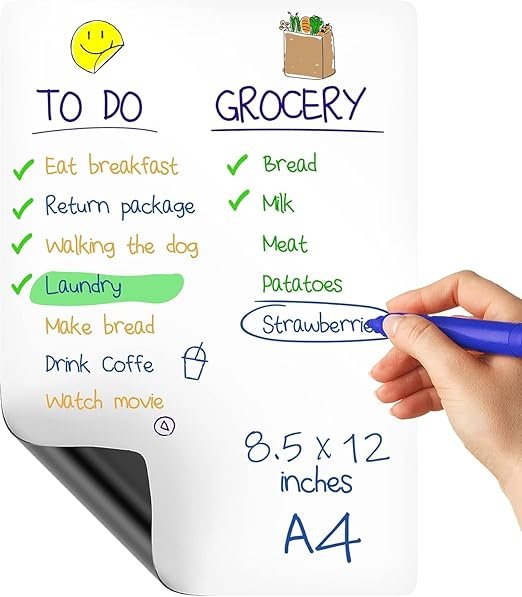 TO DO
Eat breakfast
Return package
Walking the dog
Laundry
Make bread
Drink Coffe
Watch movie
GROCERY
Bread
Milk
Meat
Patatoes
Strawberrie
8.5 x 12
inches
A4